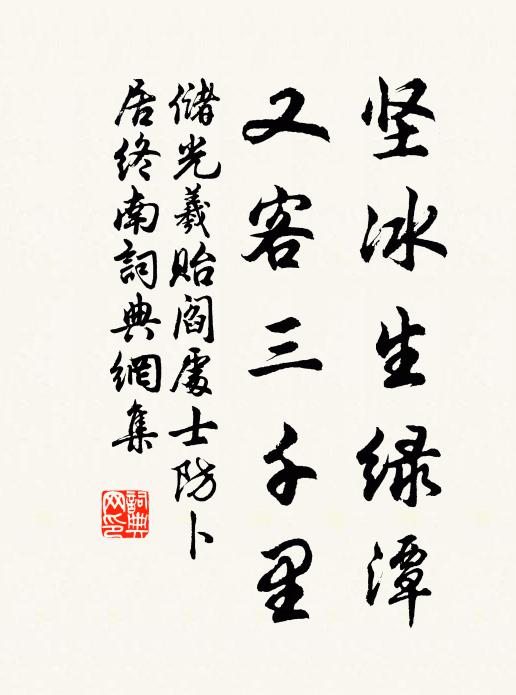 坚冰生绿潭
又客三千里
储光羲贻阎处士防卜
居终南詞典網集
詞典
网印